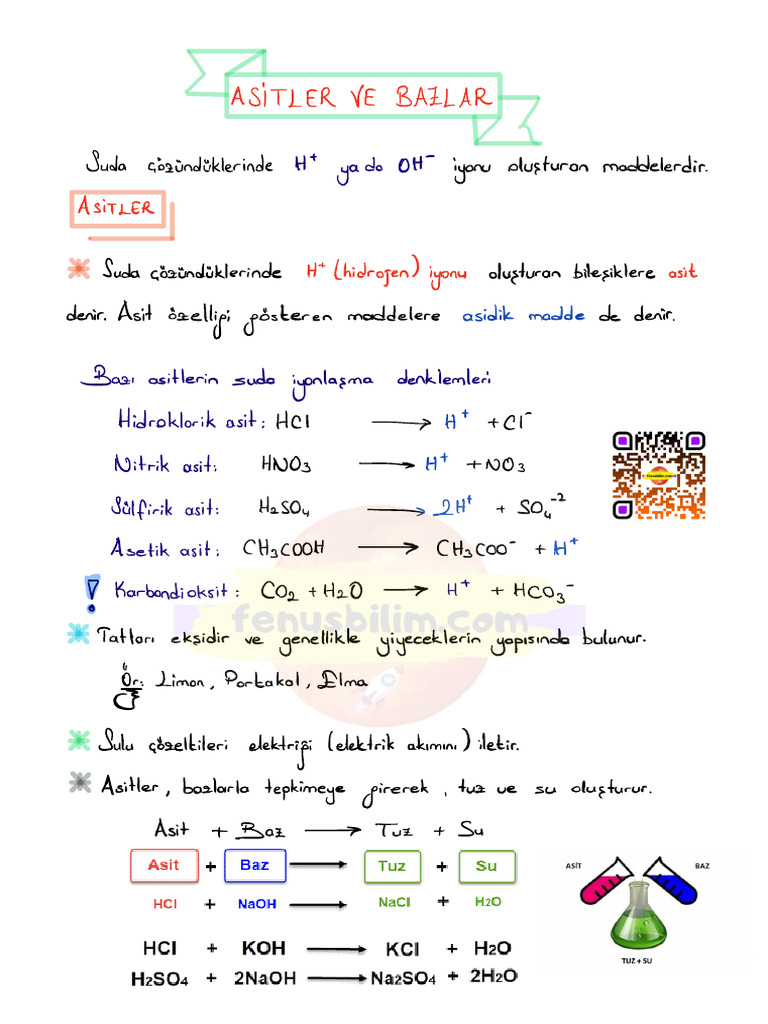 ASİTLER VE BAZLAR
Suda çözündüklerinde H⁺ ya da OH⁻ iyonu oluşturan maddelerdir.
ASİTLER
Suda çözündüklerinde H⁺ (hidrojen) iyonu oluşturan bileşiklere asit
denir. Asit özelliği gösteren maddelere asidik madde de denir.
Bazı asitlerin suda iyonlaşma denklemleri
Hidroklorik asit: HCl → H⁺ + Cl⁻
Nitrik asit: HNO₃ → H⁺ + NO₃
Sülfirik asit: H₂SO₄ → 2H⁺ + SO₄⁻²
Asetik asit: CH₃COOH → CH₃COO⁻ + H⁺
! Karbondioksit: CO₂ + H₂O → H⁺ + HCO₃⁻
Fenusbilim.Com
fenusbilim.com
Tatları ekşidir ve genellikle yiyeceklerin yapısında bulunur.
Ör: Limon, Portakal, Elma
Sulu çözeltileri elektriği (elektrik akımını) iletir.
Asitler, bazlarla tepkimeye girerek, tuz ve su oluşturur.
Asit + Baz → Tuz + Su
Asit + Baz → Tuz + Su
HCl + NaOH → NaCl + H₂O
HCl + KOH → KCl + H₂O
H₂SO₄ + 2NaOH → Na₂SO₄ + 2H₂O
ASİT BAZ
TUZ + SU